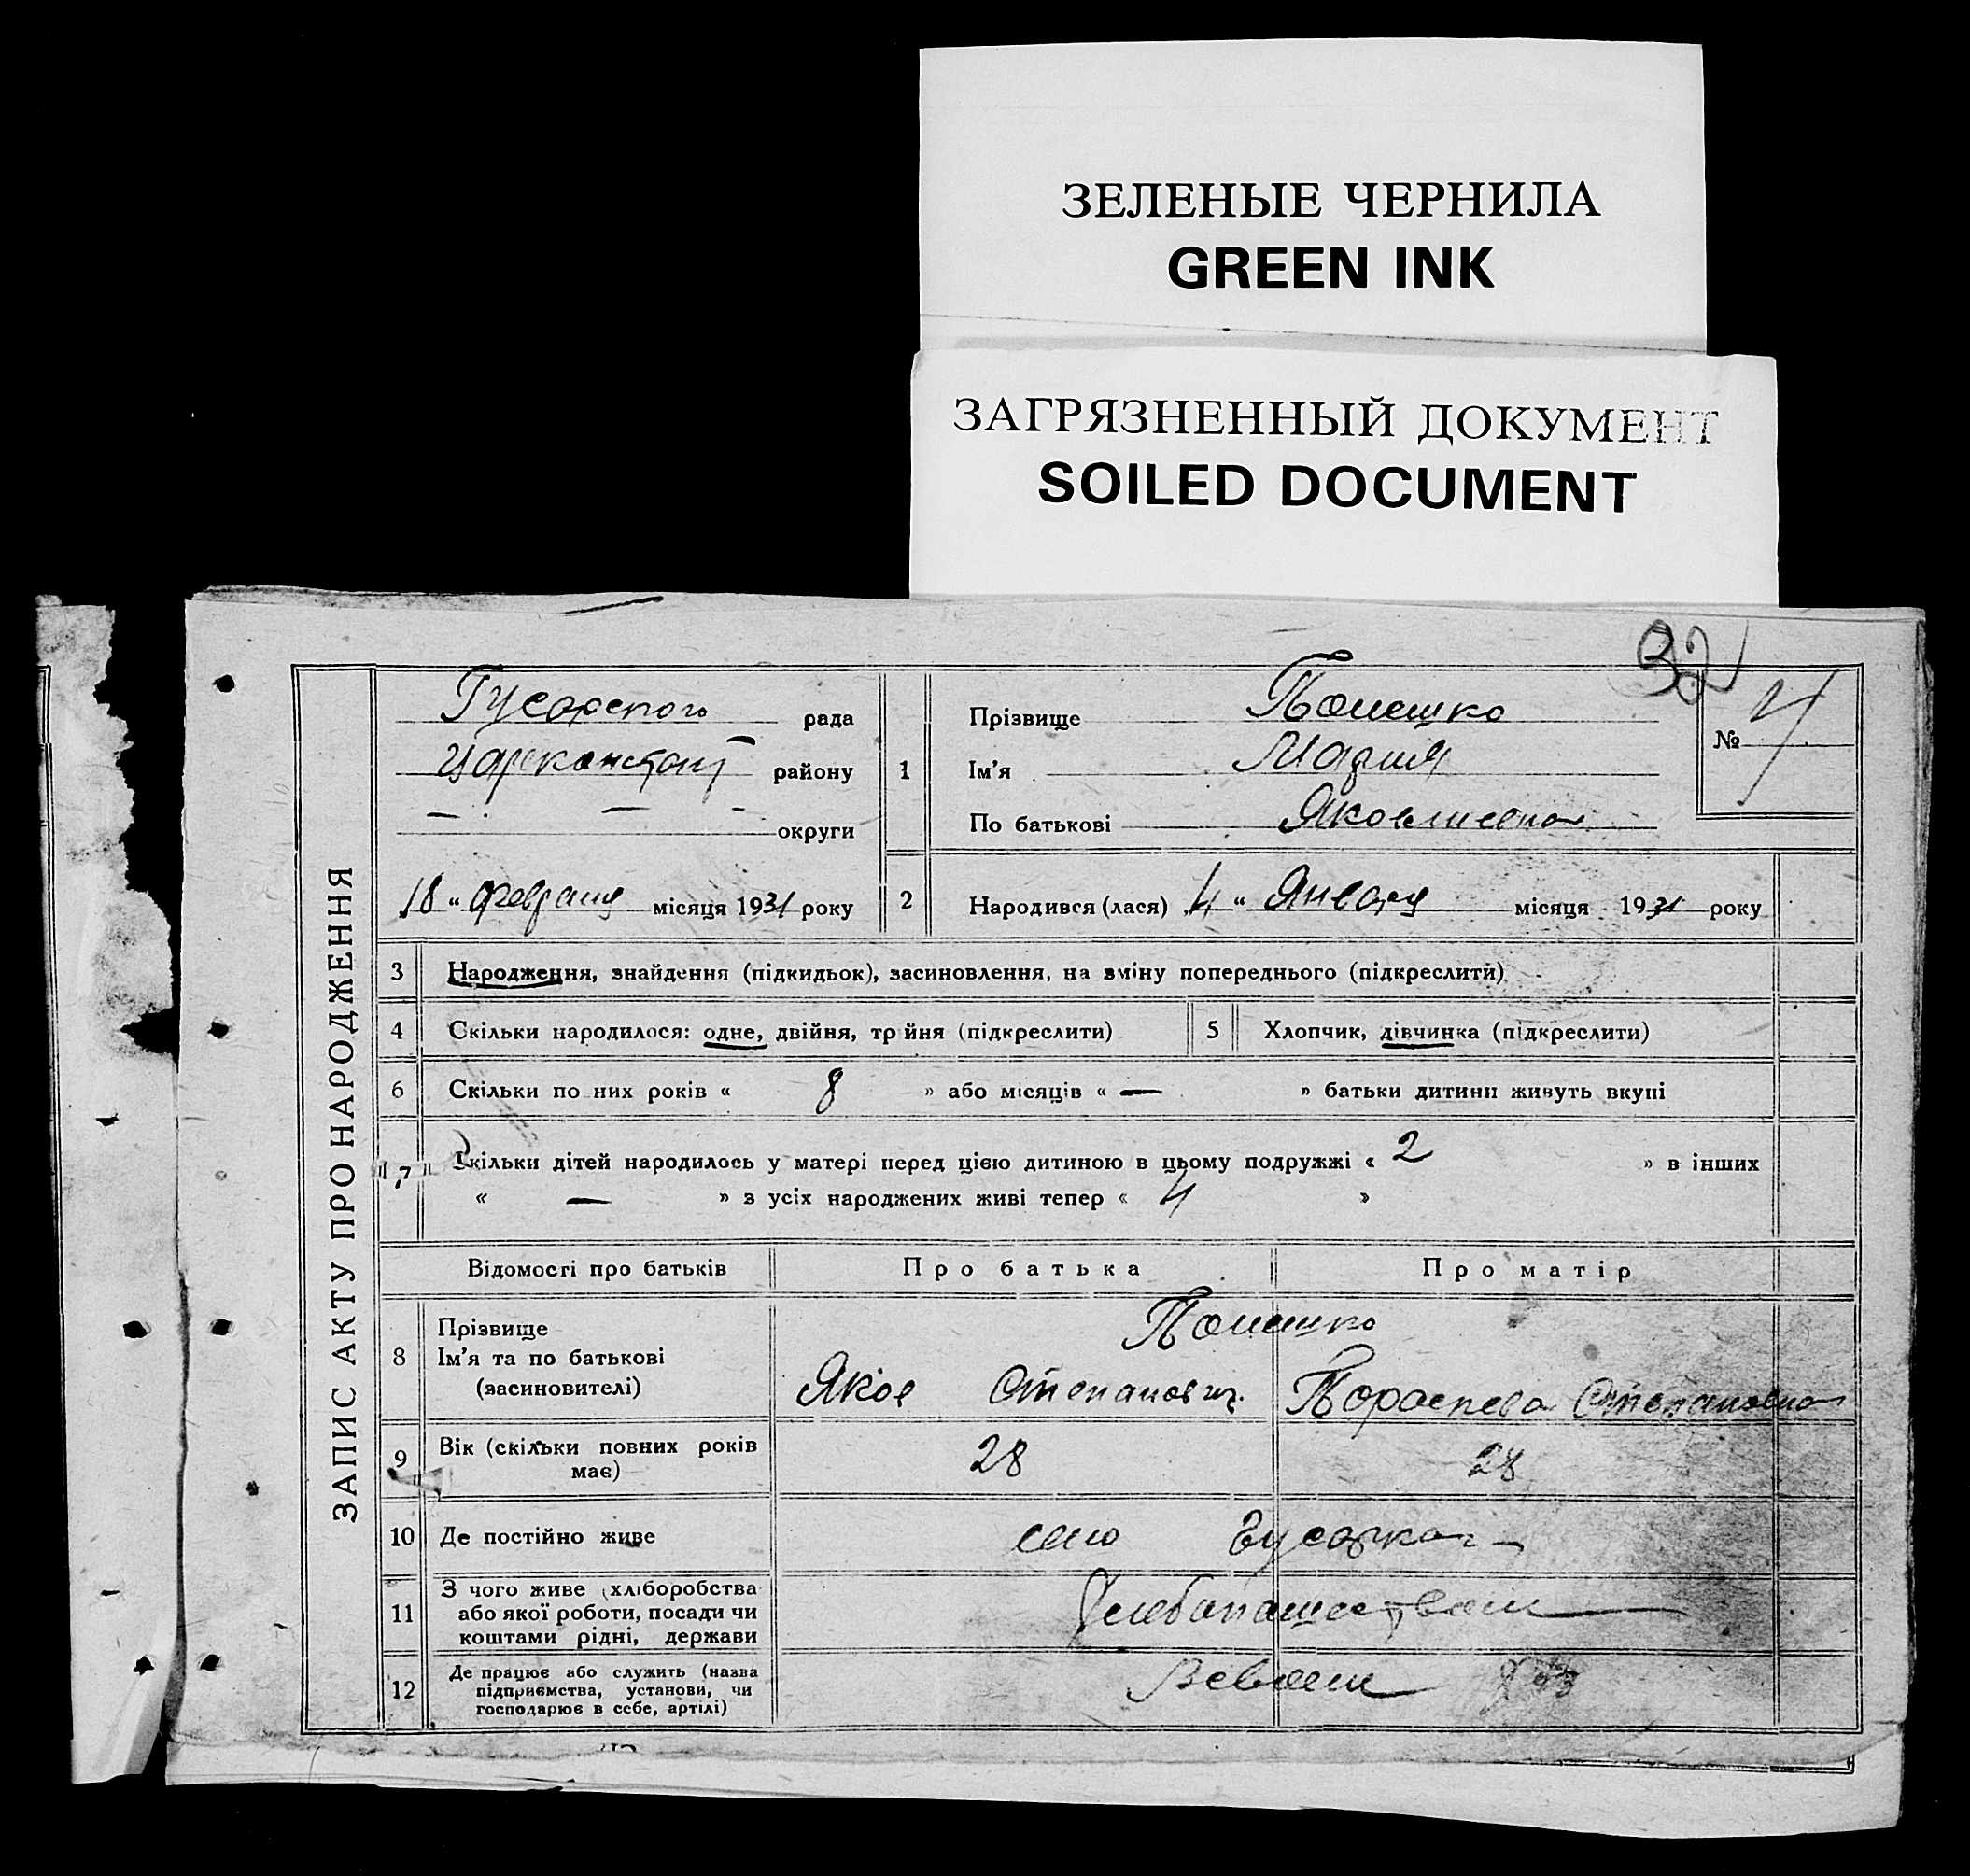 ЗЕЛЕНЫЕ ЧЕРНИЛА
GREEN INK
ЗАГРЯЗНЕННЫЙ ДОКУМЕНТ
SOILED DOCUMENT
32
ЗАПИС АКТУ ПРО НАРОДЖЕННЯ
Гусарского рада
Цареконстант района
— — — округи
18 " февраля місяця 1931 року
1
Прізвище
Ім'я Мария
По батькові Яковлевна
№ 4
2 Народився (лася) 4 " Января місяця 1931 року
3 Народження, знайдення (підкидьок), засиновлення, на зміну попереднього (підкреслити)
4 Скільки народилося: одне, двійня, трійня (підкреслити)
5 Хлопчик, дівчинка (підкреслити)
6 Скільки по них років « 8 » або місяців « — » батьки дитини живуть вкупі
7 Скільки дітей народилось у матері перед цією дитиною в цьому подружжі « 2 » в інших
« — » з усіх народжених живі тепер « 4 »
Відомості про батьків Про батька Про матір
8 Прізвище
Ім'я та по батькові
(засиновителі)
Яков Степанович Параскева Степановна
9 Вік (скільки повних років
має)
28 28
10 Де постійно живе село Гусарка
11 З чого живе (хліборобства
або якої роботи, посади чи
коштами рідні, держави
Хлебопашеством
12 Де працює або служить (назва
підприємства, установи, чи
господарює в себе, артілі)